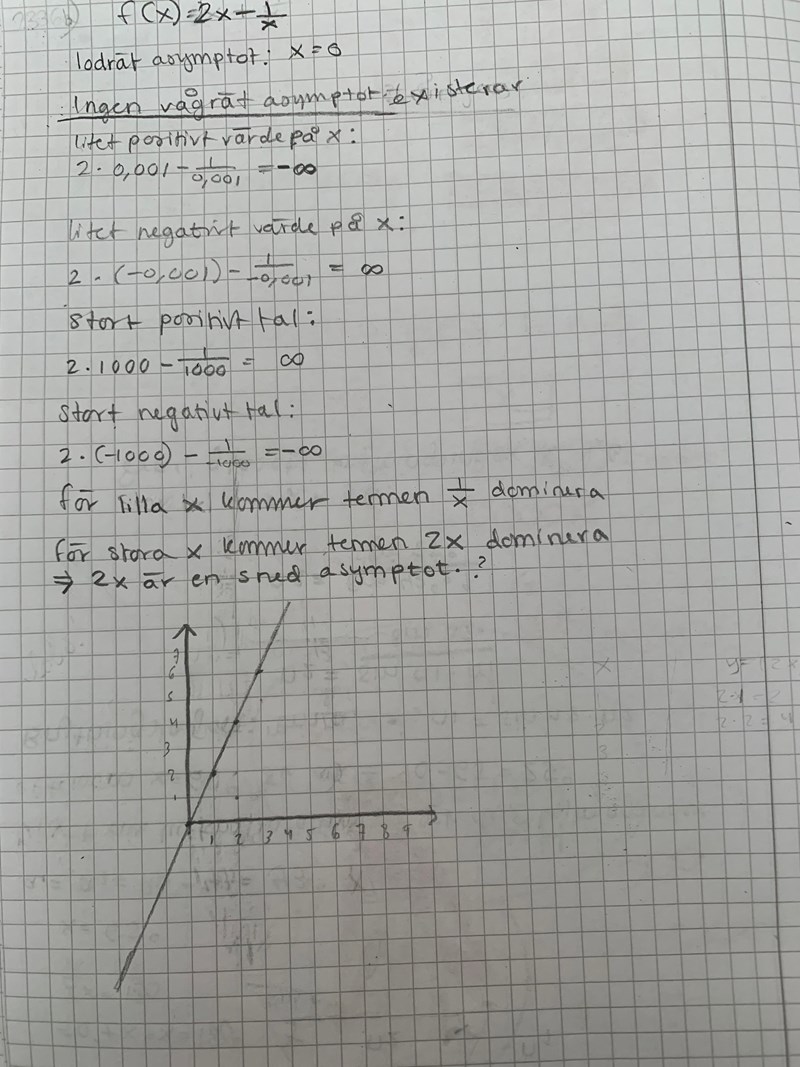 b) f(x)=2x-1/x
lodrät asymptot: x=0
Ingen vågrät asymptot existerar
litet positivt värde på x:
2·0,001-1/0,001 = -∞
litet negativt värde på x:
2·(-0,001)-1/-0,001 = ∞
stort positivt tal:
2·1000-1/1000 = ∞
stort negativt tal:
2·(-1000)-1/-1000 = -∞
för lilla x kommer termen 1/x dominera
för stora x kommer termen 2x dominera
⇒ 2x är en sned asymptot.?
7
6
5
4
3
2
1
1 2 3 4 5 6 7 8 9